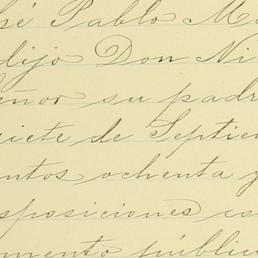 sé Pablo M
dijo Don Ni
eñor su padr
siete de Septie
ntos ochenta y
sposiciones co
mento públic